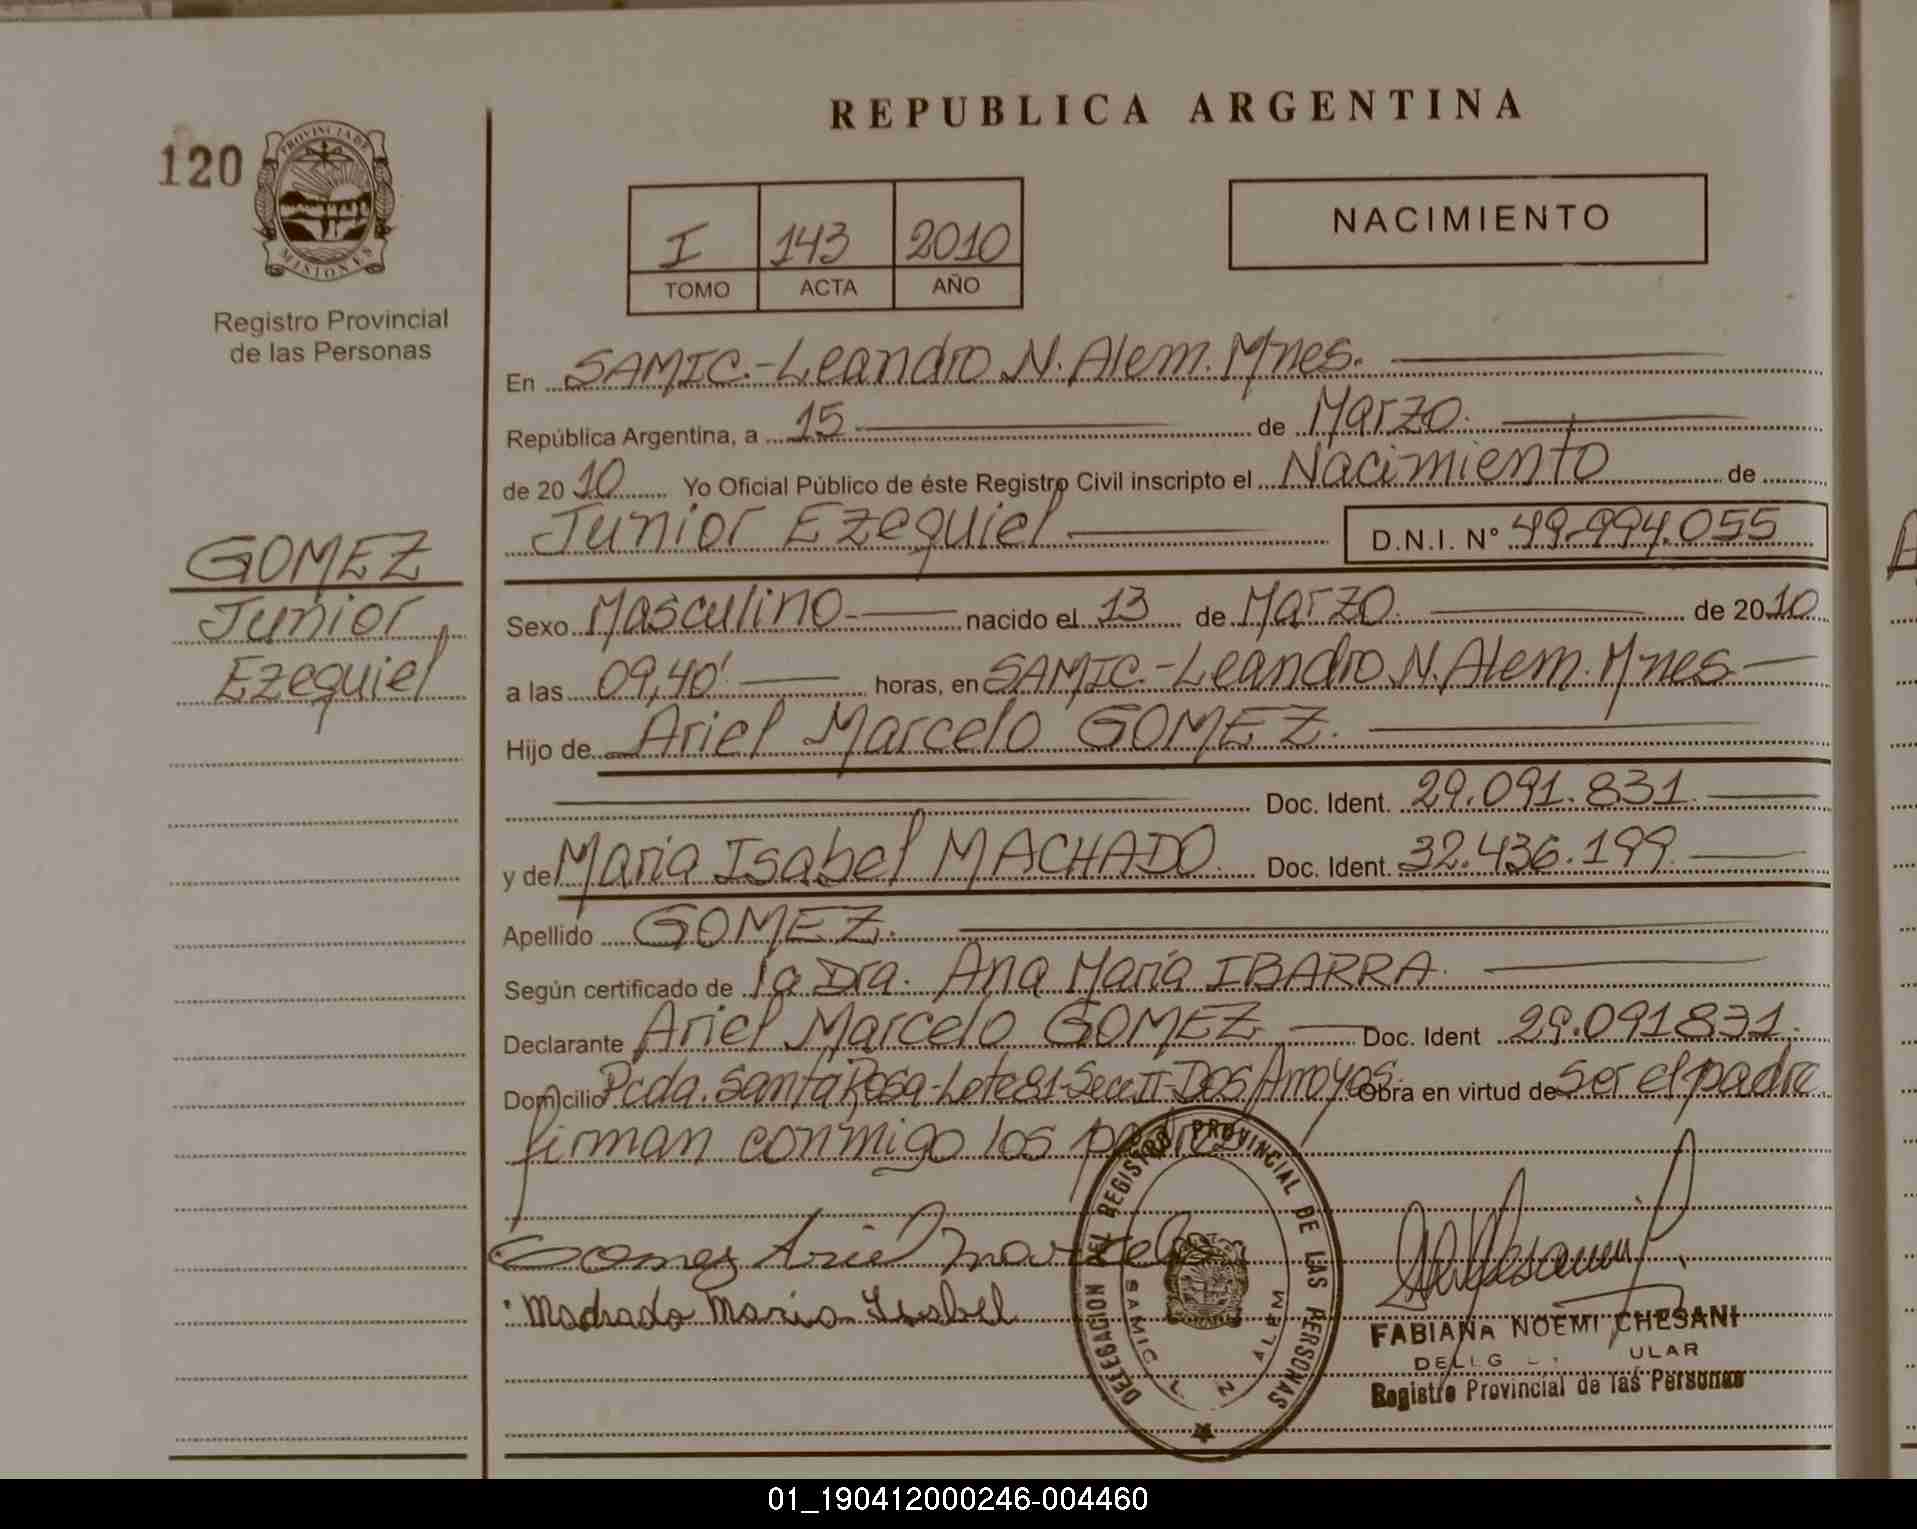 REPUBLICA ARGENTINA
120
PROVINCIA DE
MISIONES
Registro Provincial
de las Personas
I 143 2010
TOMO ACTA AÑO
NACIMIENTO
En SAMIC.-Leandro N. Alem. Mnes.
República Argentina, a 15 de Marzo.
de 2010 Yo Oficial Público de éste Registro Civil inscripto el Nacimiento de
Junior Ezequiel D.N.I. N° 49.994.055
GOMEZ
Junior
Ezequiel
Sexo Masculino- nacido el 13 de Marzo. de 2010
a las 09,40' horas, en SAMIC.-Leandro N. Alem. Mnes
Hijo de Ariel Marcelo GOMEZ.
Doc. Ident. 29.091.831
y de Maria Isabel MACHADO. Doc. Ident. 32.436.199
Apellido GOMEZ.
Según certificado de la Dra. Ana Maria IBARRA.
Declarante Ariel Marcelo GOMEZ Doc. Ident 29.091831.
Domicilio Pcda. Santa Rosa-Lote81-Secc II-Dos Arroyos. Obra en virtud de ser el padre
firman conmigo los padres
Gomez Ariel Marcelo
Machado Maria Isabel
DELEGACION DEL REGISTRO PROVINCIAL DE LAS PERSONAS
SAMIC L N ALEM
FABIANA NOEMI CHESANI
Registro Provincial de las Personas
01_190412000246-004460